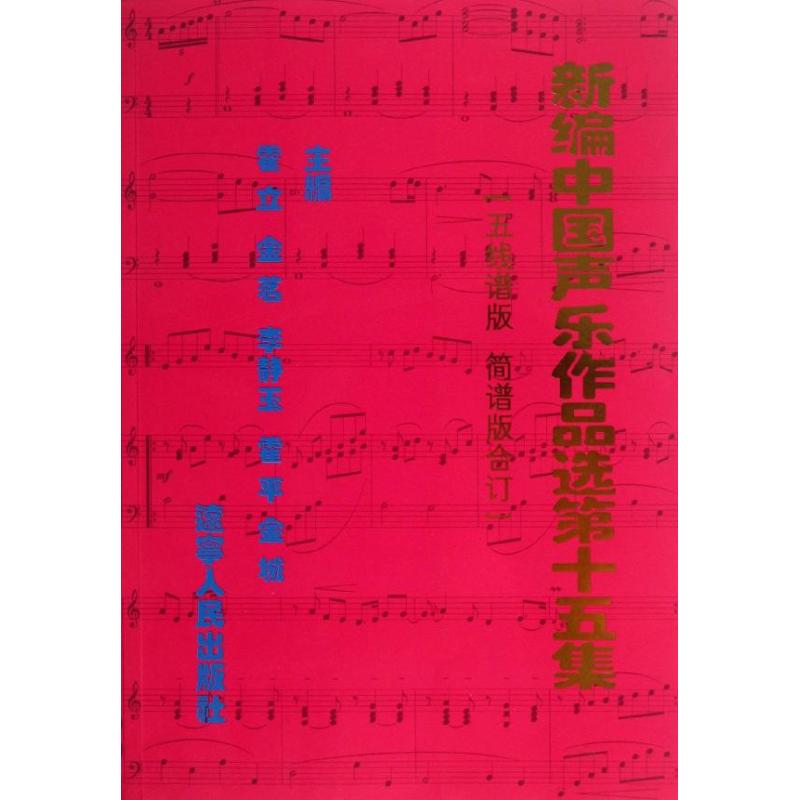 新编中国声乐作品选第十五集
(五线谱版 简谱版合订)
主编
霍立 金茗 李静玉 霍平 金城
辽宁人民出版社
mf
mf